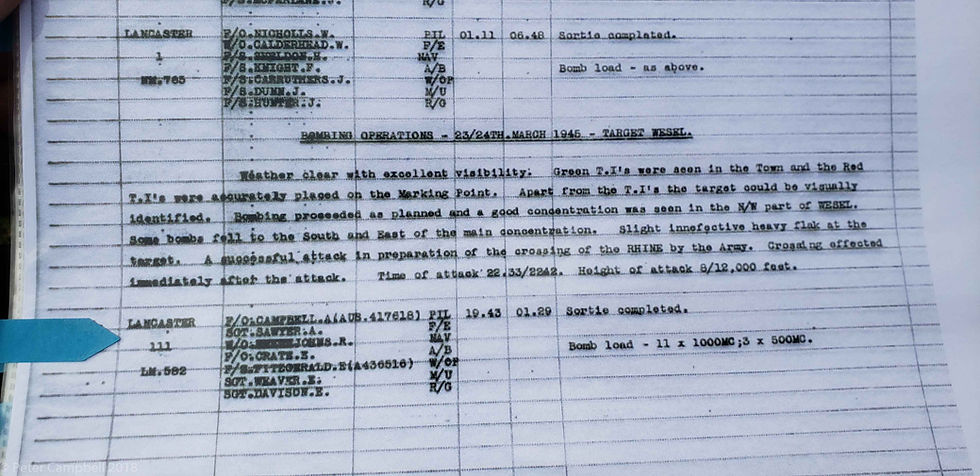 R/G
LANCASTER F/O.NICHOLLS.W. PIL 01.11 06.48 Sortie completed.
W/O.CALDERHEAD.W. F/E
1 F/S.SHELDON.H. NAV
F/S.KNIGHT.F. A/B Bomb load - as above.
NN.765 F/S.CARRUTHERS.J. W/OP
F/S.DUNN.J. M/U
F/S.HUNTER.J. R/G
BOMBING OPERATIONS - 23/24TH.MARCH 1945 - TARGET WESEL.
Weather clear with excellent visibility. Green T.I's were seen in the Town and the Red
T.I's were accurately placed on the Marking Point. Apart from the T.I's the target could be visually
identified. Bombing proceeded as planned and a good concentration was seen in the N/W part of WESEL.
Some bombs fell to the South and East of the main concentration. Slight inneffective heavy flak at the
target. A successful attack in preparation of the crossing of the RHINE by the Army. Crossing effected
immediately after the attack. Time of attack 22.33/2242. Height of attack 8/12,000 feet.
LANCASTER F/O.CAMPBELL.A(AUS.417618) PIL 19.43 01.29 Sortie completed.
SGT.SAWYER.A. F/E
111 JOHNS.R. NAV
F/O.CRATE.E. A/B Bomb load - 11 x 1000MC;3 x 500MC.
LM.582 F/S.FITZGERALD.E(A436516) W/OP
SGT.WEAVER.E. M/U
SGT.DAVISON.E. R/G
© Peter Campbell 2018